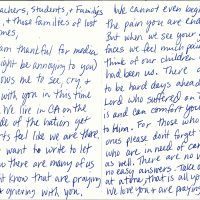 achers, Students, + Familys
, + those families of lost
ones,
am thankful for media
ght be annoying to you)
lows me to see, cry, +
with you in this time
. We live in CA on the
de of the nation yet
rts feel like we are there
want to write to let
w there are many of us
t know that are praying
+ grieving with you.
We cannot even begin
the pain you are end
But when we see your
faces we feel much pain
think of our children
had been us. There a
to be hard days ahead
Lord who suffered on
is and can comfort you
to Him. For those who
ones please don't forget
who are in need of care
as well. There are no
no easy answers. Take
at a time, that is all yo
We love you + are praying